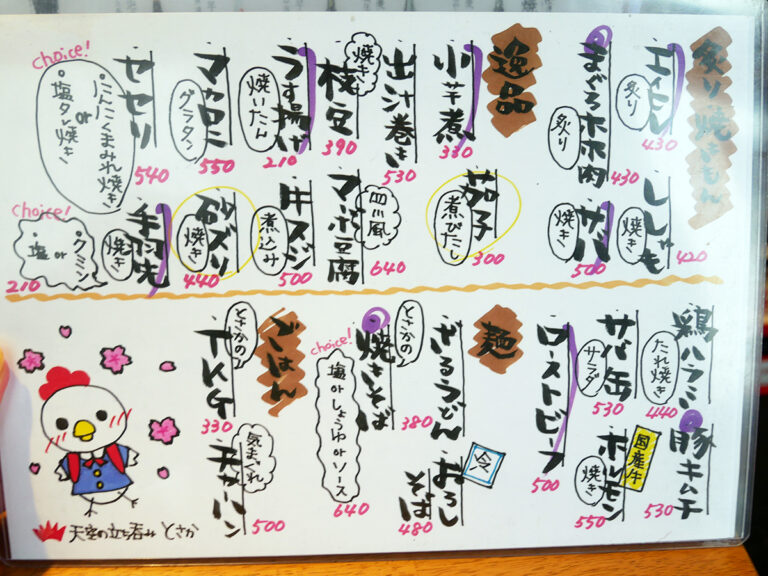 炙り焼きもん
エイヒレ
炙り
430
ししゃも
焼き
420
まぐろホホ肉
炙り
430
サバ
焼き
500
逸品
小芋煮
330
茄子
煮びたし
300
出汁巻き
530
焼き
枝豆
390
四川風
マーボ豆腐
640
うす揚げ
焼いたん
210
牛スジ
煮込み
500
マカロニ
グラタン
550
砂ズリ
焼き
440
セセリ
540
choice!
・にんにくまみれ焼き
or
・塩タレ焼き
手羽先
焼き
210
choice!
・塩 or クミン
鶏ハラミ
たれ焼き
440
豚キムチ
530
サバ缶
サラダ
530
国産牛
ホルモン
焼き
550
ローストビーフ
500
麺
ざるうどん
380
冷
おろしそば
480
とさかの
焼きそば
640
choice!
塩 or しょうゆ or ソース
ごはん
とさかの
TKG
330
気まぐれ
チャーハン
500
天空の立ち呑み とさか